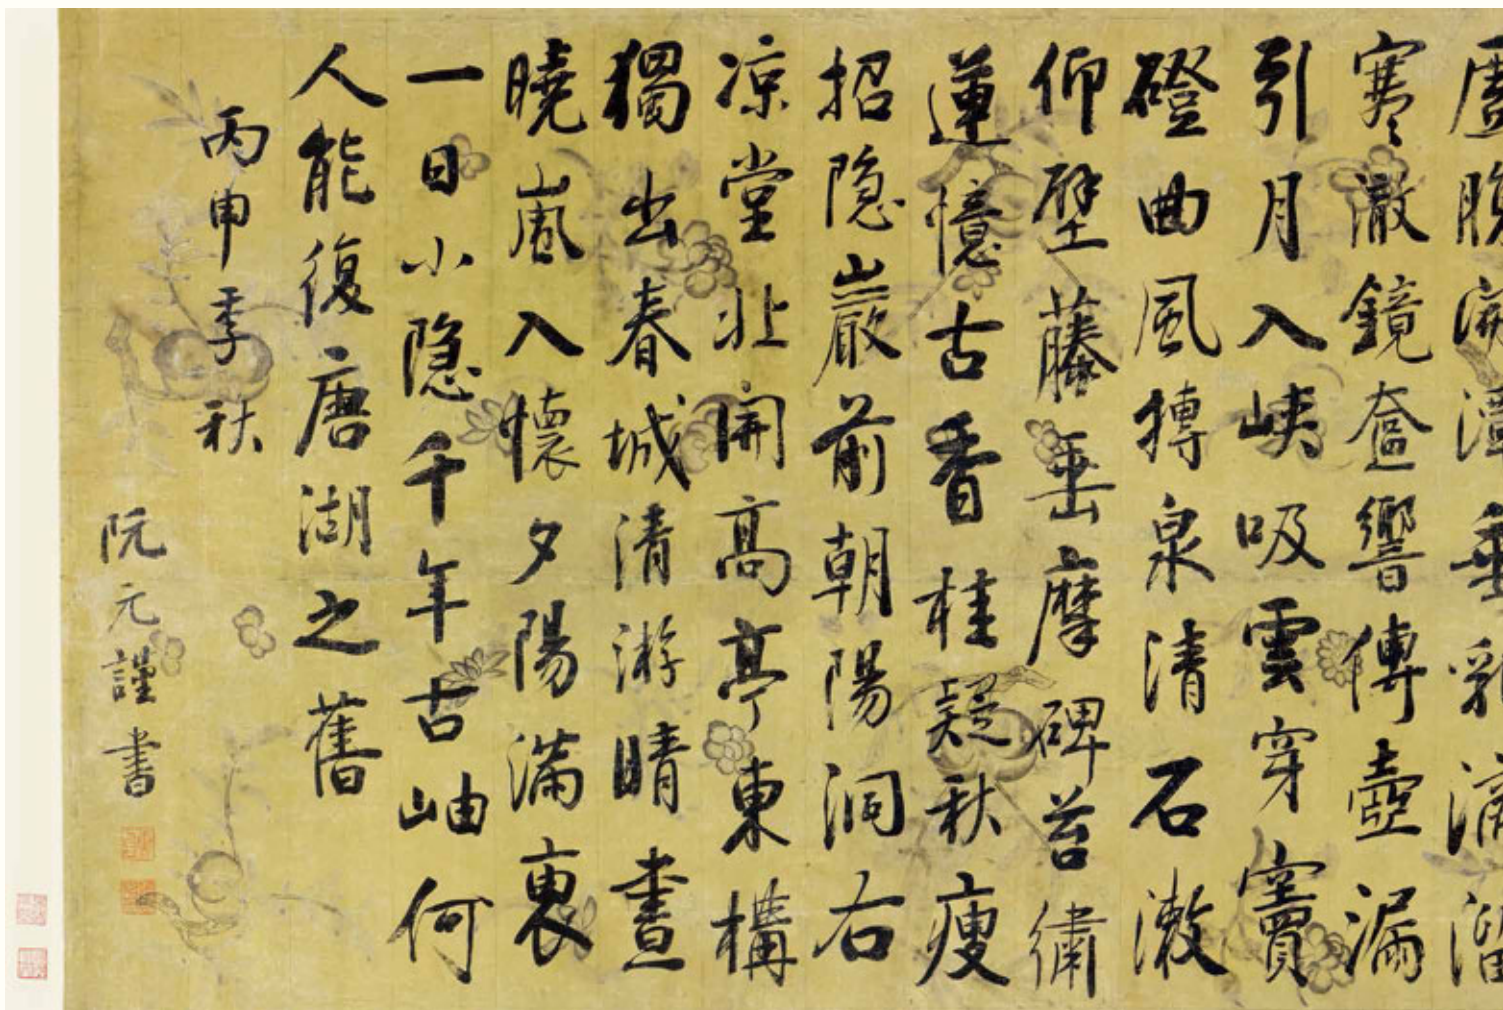 垂乳滴溜
寒澈鏡奩響傳壺漏
引月入峽吸雲穿竇
磴曲風摶泉清石漱
仰壁藤垂摩碑苔繡
蓮憶古香桂疑秋瘦
招隐巖前朝陽洞右
凉堂北開高亭東構
獨出春城清游晴晝
曉嵐入懷夕陽滿褎
一日小隐千年古岫何
人能復唐湖之舊
丙申季秋
阮元謹書